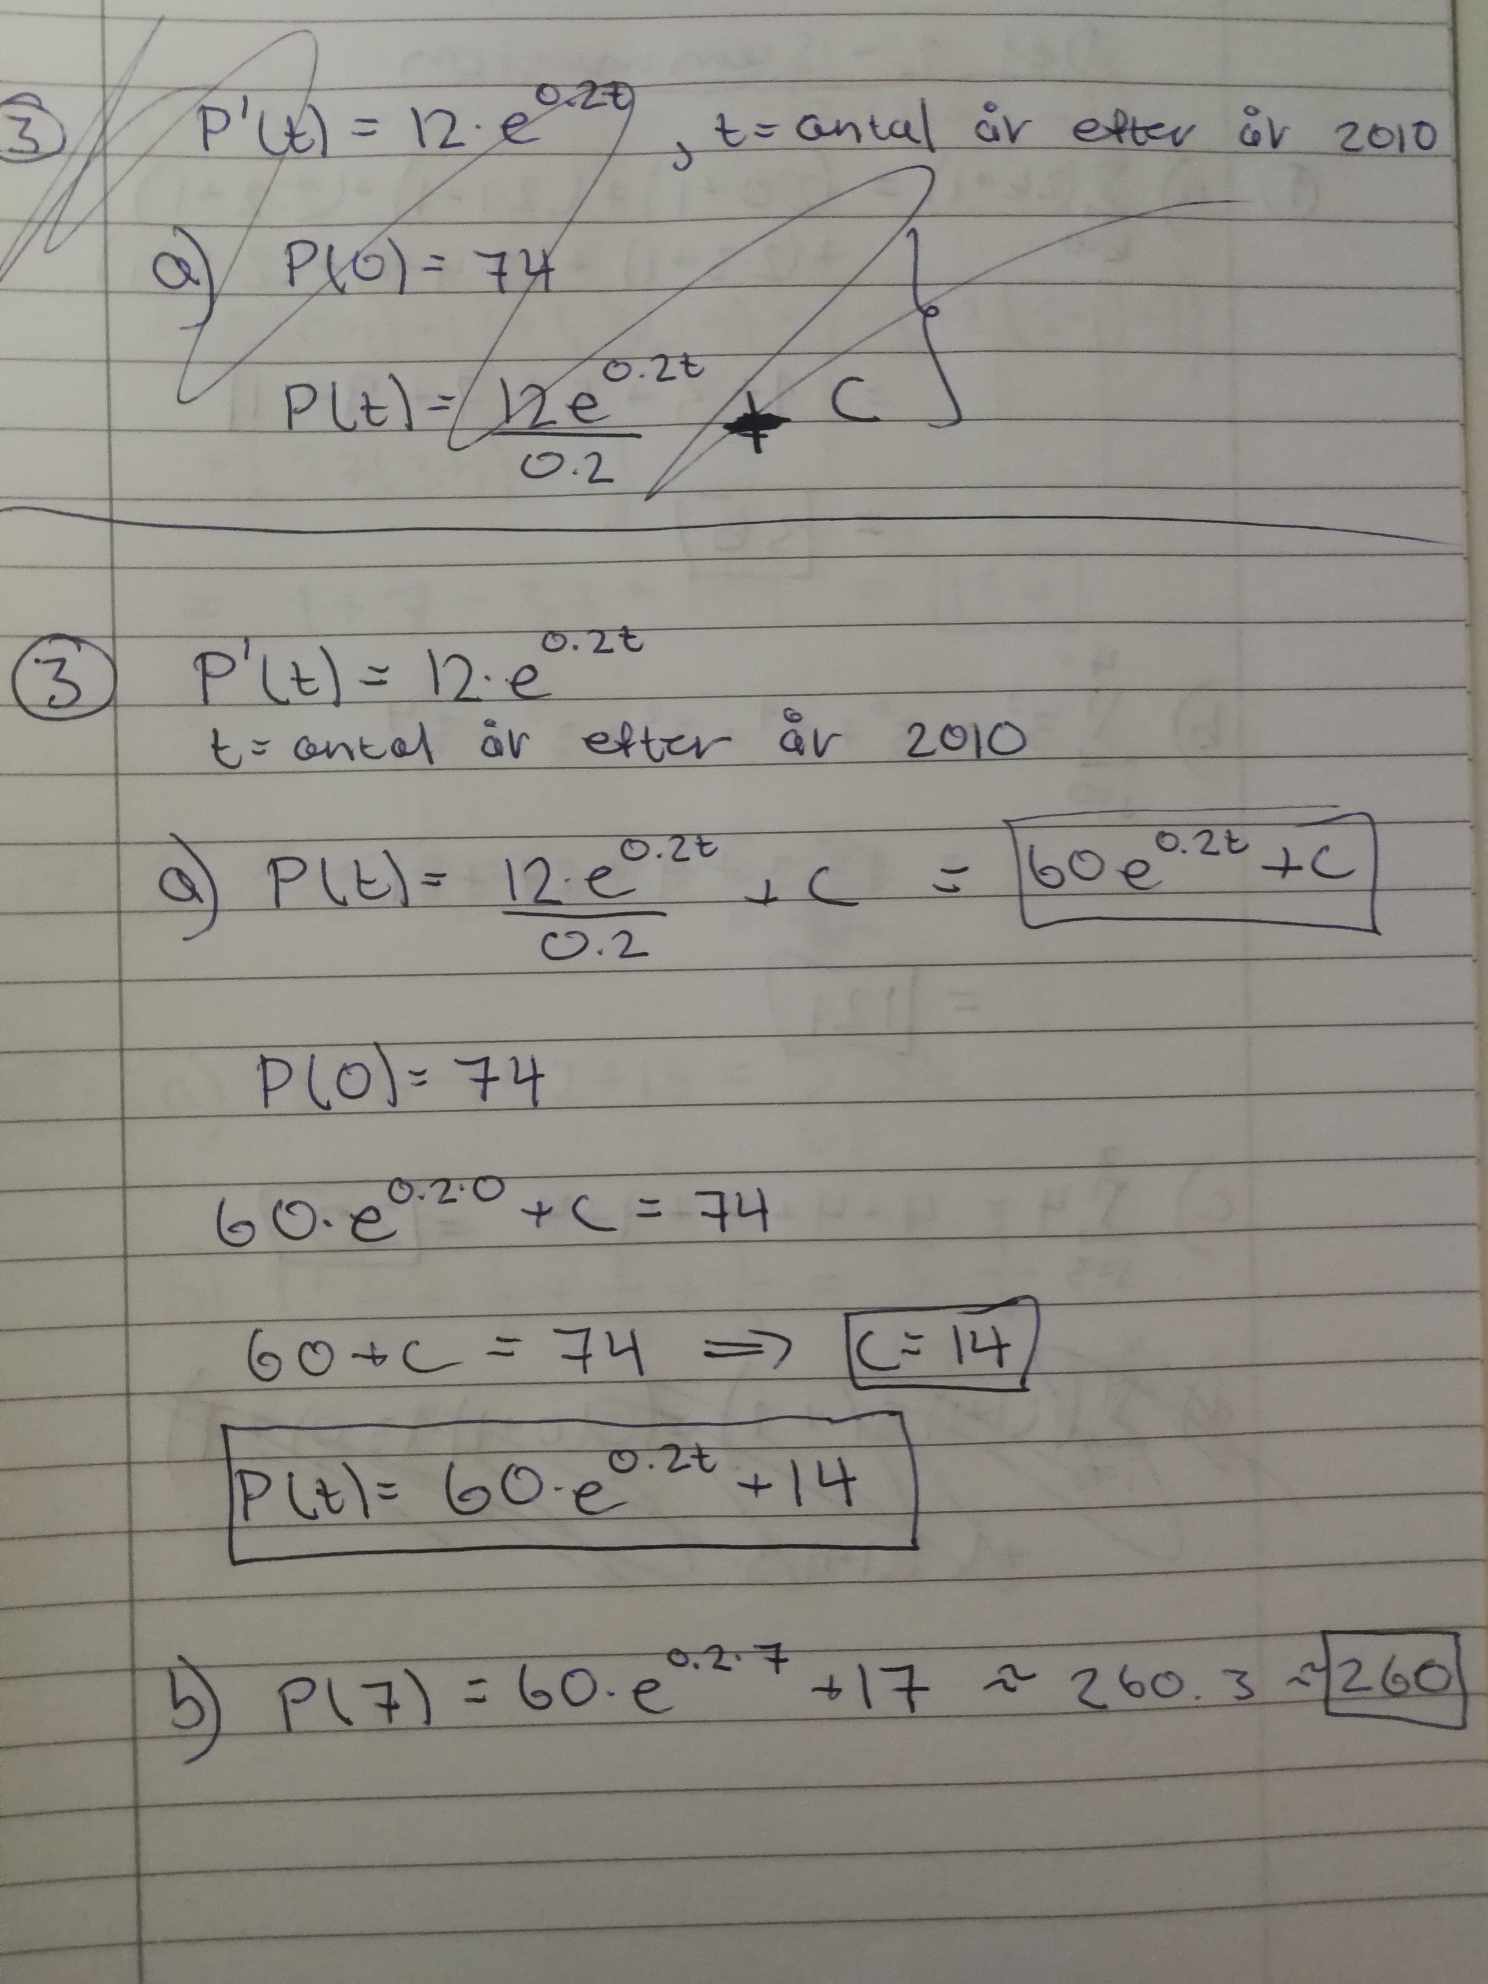 ③ P'(t) = 12·e^0.2t, t = antal år efter år 2010
a) P(0) = 74
P(t) = 12e^0.2t / 0.2 + C
③ P'(t) = 12·e^0.2t
t = antal år efter år 2010
a) P(t) = 12·e^0.2t / 0.2 + C = 60e^0.2t + C
P(0) = 74
60·e^0.2·0 + C = 74
60 + C = 74 ⇒ C = 14
P(t) = 60·e^0.2t + 14
b) P(7) = 60·e^0.2·7 + 17 ≈ 260.3 ≈ 260